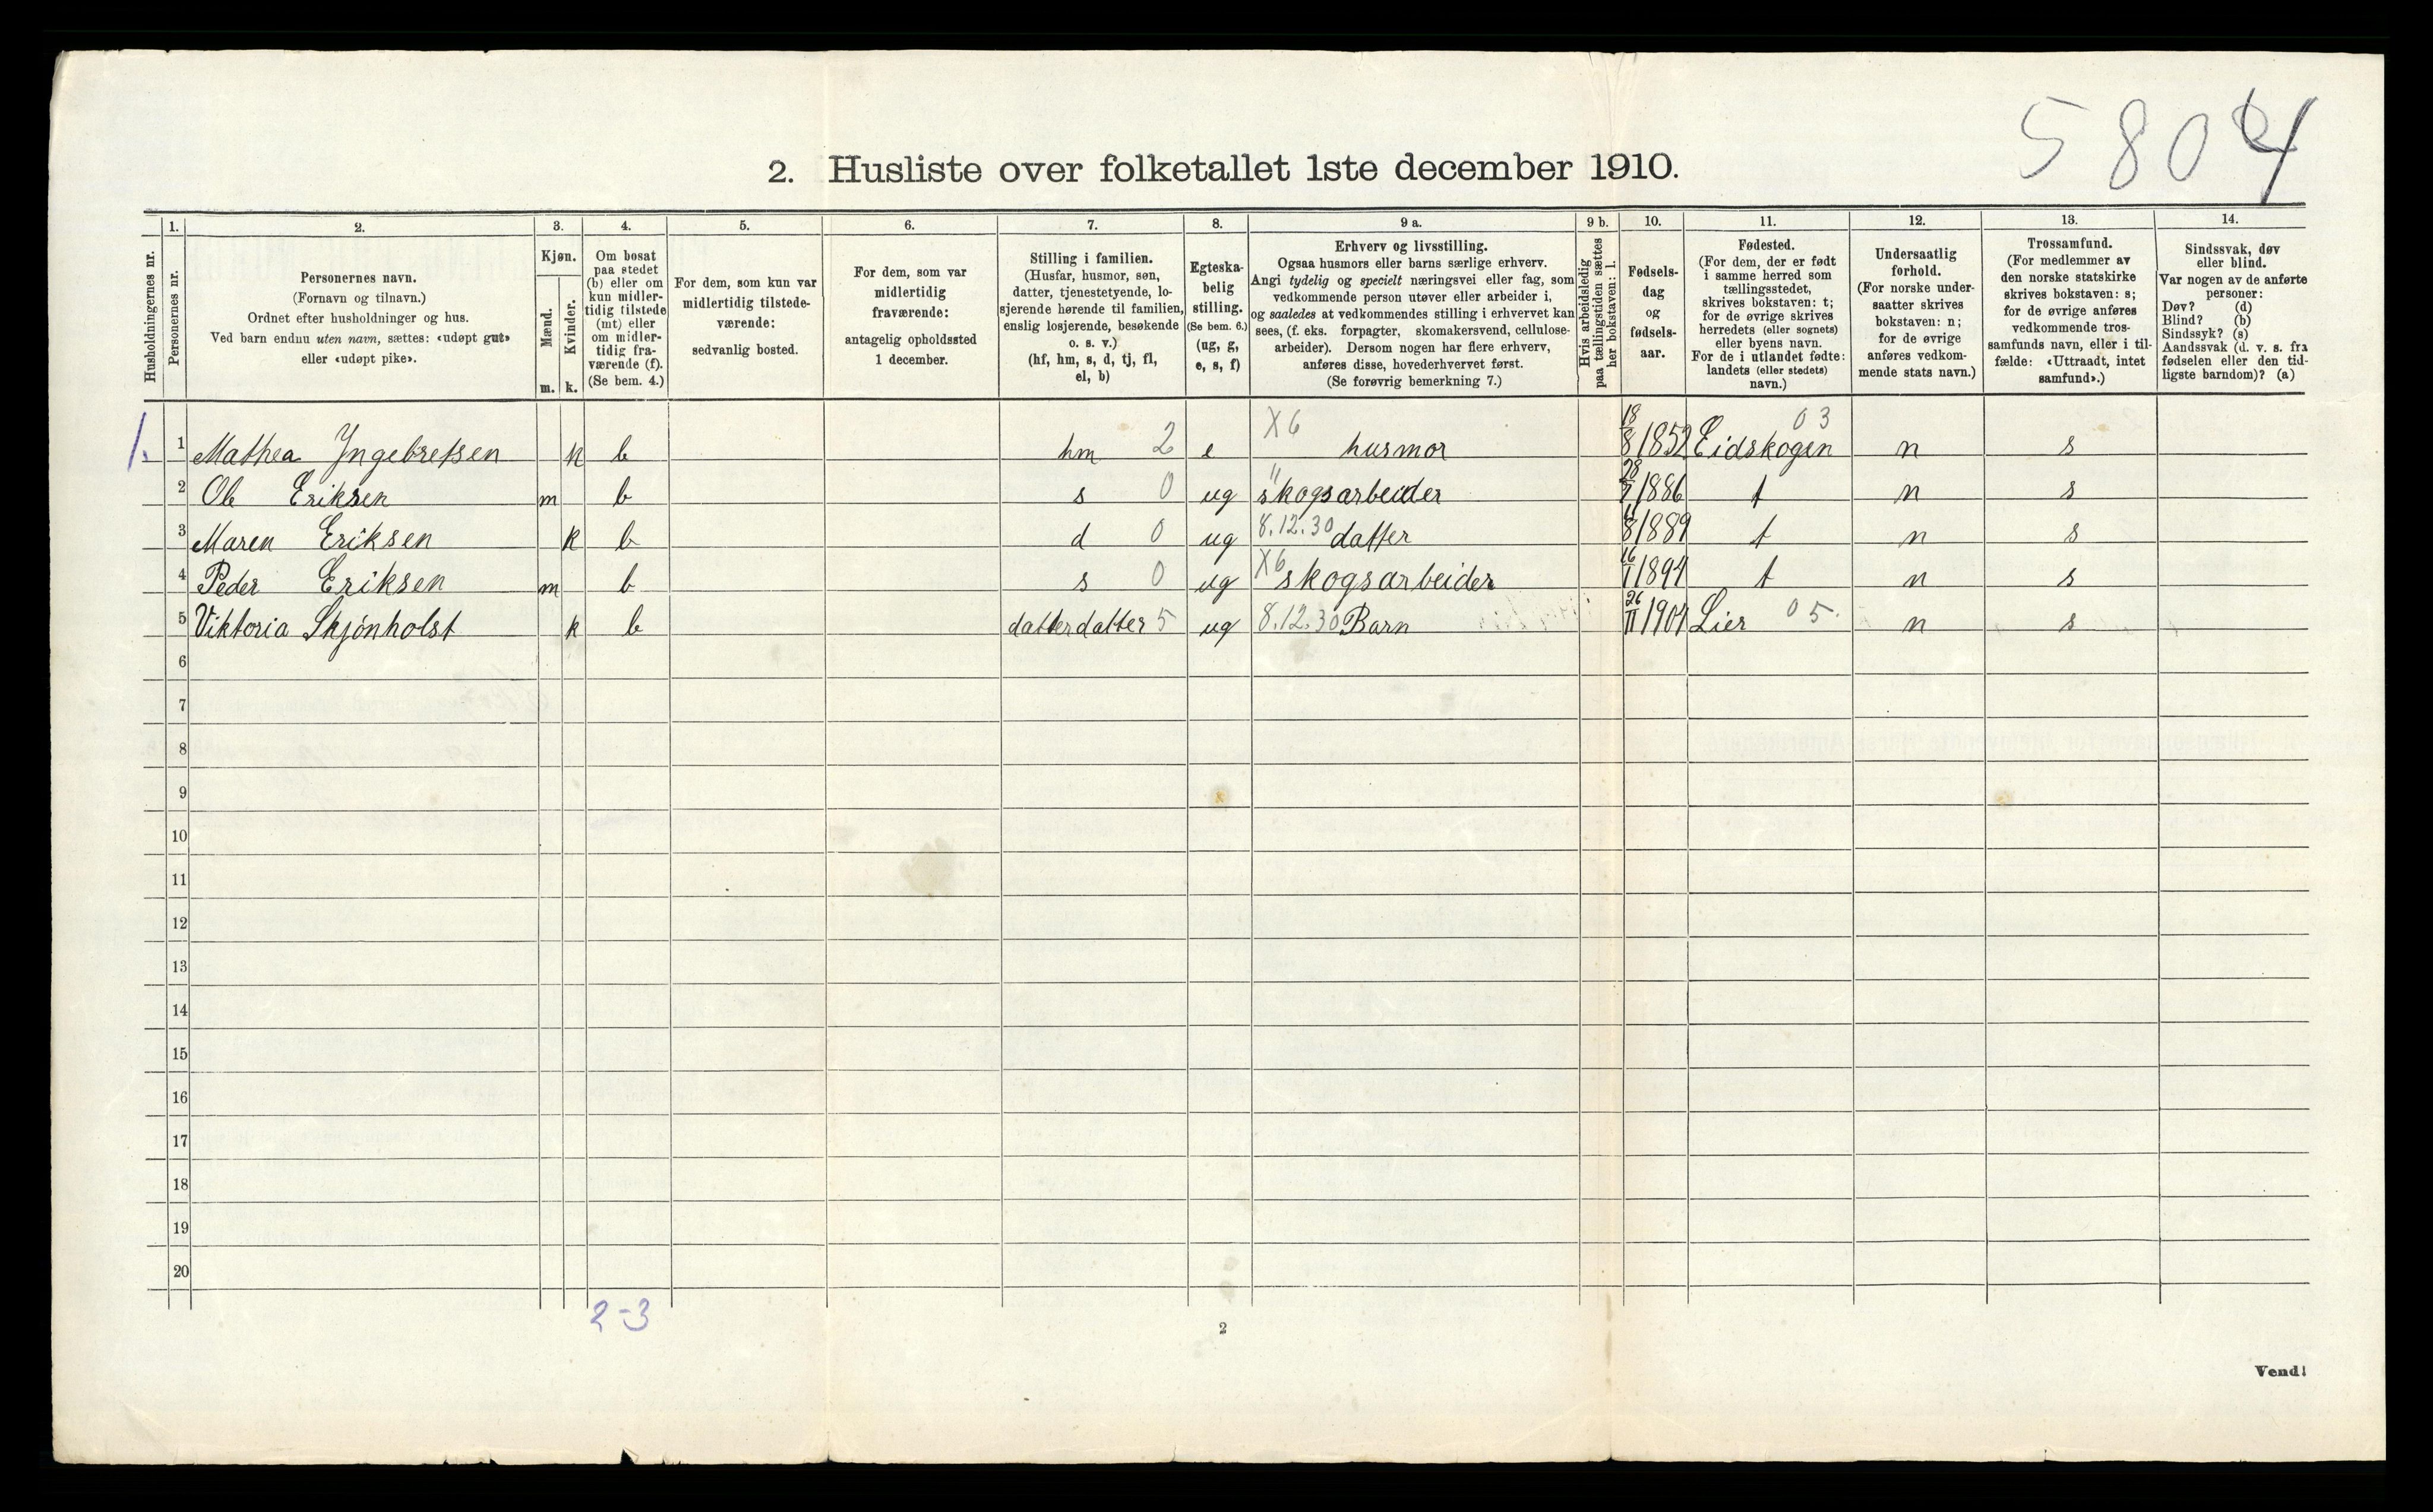 5804
2. Husliste over folketallet 1ste december 1910.
Husholdningernes nr.
1.
Personernes nr.
2.
Personernes navn.
(Fornavn og tilnavn.)
Ordnet efter husholdninger og hus.
Ved barn endnu uten navn, sættes: «udøpt gut»
eller «udøpt pike».
3.
Kjøn.
Mænd.
Kvinder.
m. k.
4.
Om bosat
paa stedet
(b) eller om
kun midler-
tidig tilstede
(mt) eller
om midler-
tidig fra-
værende (f).
(Se bem. 4.)
5.
For dem, som kun var
midlertidig tilstede-
værende:
sedvanlig bosted.
6.
For dem, som var
midlertidig
fraværende:
antagelig opholdssted
1 december.
7.
Stilling i familien.
(Husfar, husmor, søn,
datter, tjenestetyende, lo-
sjerende hørende til familien,
enslig losjerende, besøkende
o. s. v.)
(hf, hm, s, d, tj, fl,
el, b)
8.
Egteska-
belig
stilling.
(Se bem. 6.)
(ug, g,
e, s, f)
9 a.
Erhverv og livsstilling.
Ogsaa husmors eller barns særlige erhverv.
Angi tydelig og specielt næringsvei eller fag, som
vedkommende person utøver eller arbeider i,
og saaledes at vedkommendes stilling i erhvervet kan
sees, (f. eks. forpagter, skomakersvend, cellulose-
arbeider). Dersom nogen har flere erhverv,
anføres disse, hovederhvervet først.
(Se forøvrig bemerkning 7.)
9 b.
Hvis arbeidsledig
paa tællingstiden sættes
her bokstaven: l.
10.
Fødsels-
dag
og
fødsels-
aar.
11.
Fødested.
(For dem, der er født
i samme herred som
tællingsstedet,
skrives bokstaven: t;
for de øvrige skrives
herredets (eller sognets)
eller byens navn.
For de i utlandet fødte:
landets (eller stedets)
navn.)
12.
Undersaatlig
forhold.
(For norske under-
saatter skrives
bokstaven: n;
for de øvrige
anføres vedkom-
mende stats navn.)
13.
Trossamfund.
(For medlemmer av
den norske statskirke
skrives bokstaven: s;
for de øvrige anføres
vedkommende tros-
samfunds navn, eller i til-
fælde: «Uttraadt, intet
samfund».)
14.
Sindssvak, døv
eller blind.
Var nogen av de anførte
personer:
Døv? (d)
Blind? (b)
Sindssyk? (s)
Aandssvak (d. v. s. fra
fødselen eller den tid-
ligste barndom)? (a)
1. 1 Mathea Yngebretsen k b hm 2 e X6 husmor 18/8 1852 Eidskogen 03 n s
2 Ole Eriksen m b s 0 ug " skogsarbeider 28/7 1886 t n s
3 Maren Eriksen k b d 0 ug 8.12.30 datter 8 1889 t n s
4 Peder Eriksen m b s 0 ug X6 skogsarbeider 16/1 1894 t n s
5 Viktoria Skjønholst k b datterdatter 5 ug 8.12.30 Barn 26/11 1904 Lier 05. n s
6
7
8
9
10
11
12
13
14
15
16
17
18
19
20
2-3
2
Vend!